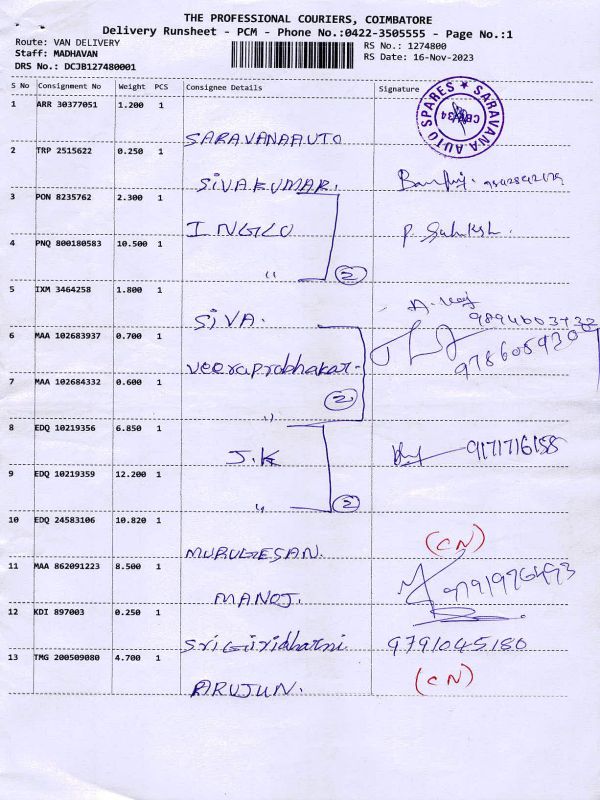 THE PROFESSIONAL COURIERS, COIMBATORE
Delivery Runsheet - PCM - Phone No.:0422-3505555 - Page No.:1
Route: VAN DELIVERY RS No.: 1274800
Staff: MADHAVAN RS Date: 16-Nov-2023
DRS No.: DCJB127480001
S No Consignment No Weight PCS Consignee Details Signature
1 ARR 30377051 1.200 1 SARAVANAAUTO
SARAVANA AUTO SPARES
2 TRP 2515622 0.250 1 SIVAKUMAR.
3 PON 8235762 2.300 1 INGLO
4 PNQ 800180583 10.500 1 " 2
5 IXM 3464258 1.800 1 SIVA.
6 MAA 102683937 0.700 1 veeraprabhakar-
7 MAA 102684332 0.600 1 " 2
8 EDQ 10219356 6.850 1 J.K 9171716158
9 EDQ 10219359 12.200 1 " 2
10 EDQ 24583106 10.820 1 MURUGESAN. (CN)
11 MAA 862091223 8.500 1 MANOJ.
12 KDI 897003 0.250 1 SriGuridharni 9791045180
13 TMG 200509080 4.700 1 ARUJUN. (CN)